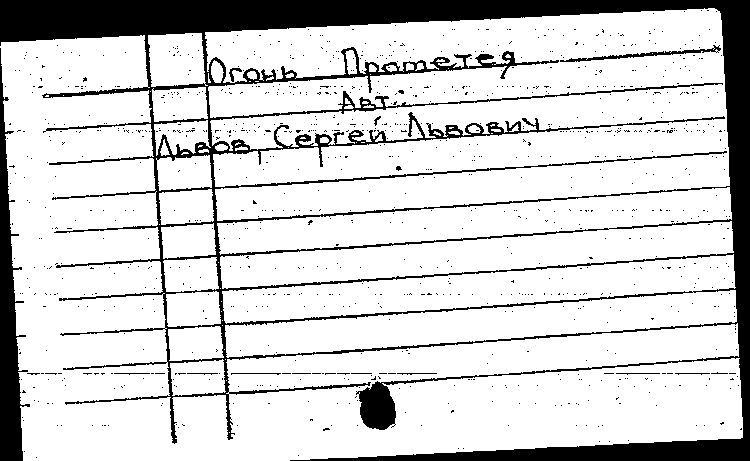 Огонь Прометея
Авт.:
Львов, Сергей Львович.